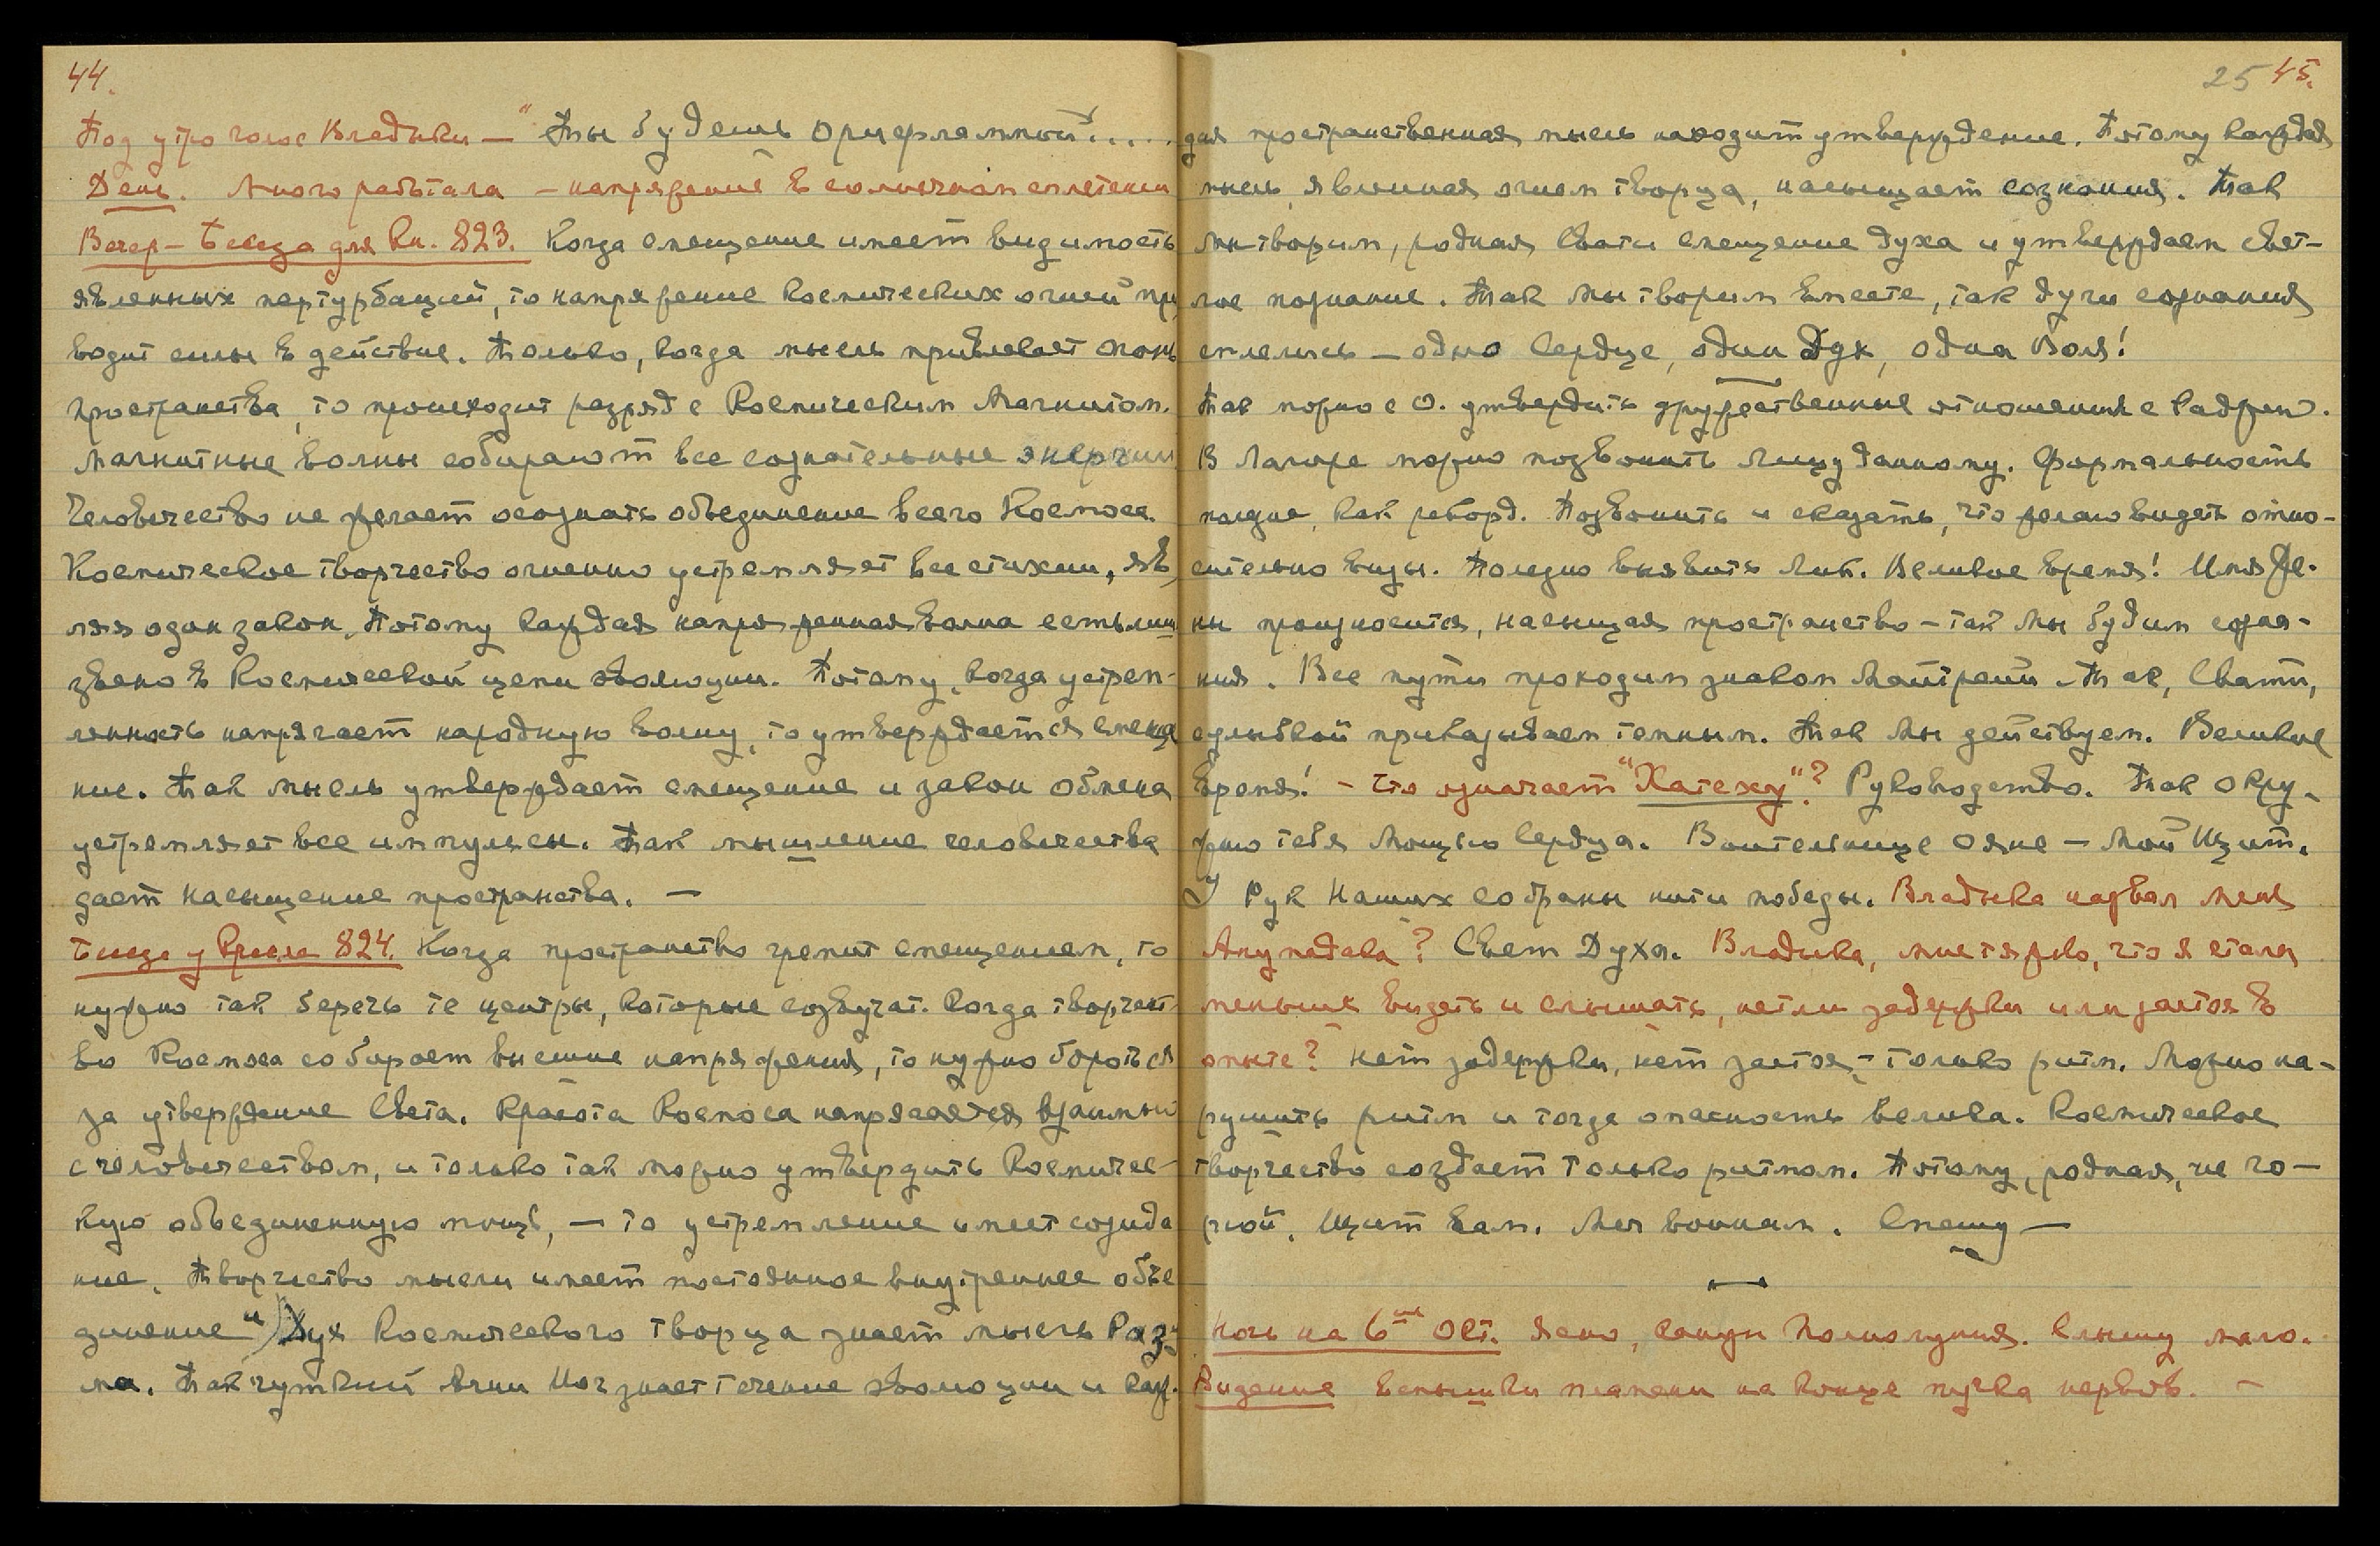 44.
Под утро голос Владыки — "Ты будешь Орифламмой.....
День. Много работала — напряжение в солнечном сплетении
Вечер — Беседа для Кн. 823. Когда смещение имеет видимость
явленных пертурбаций, то напряжение космических огней при
водит силы в действие. Только, когда мысль привлекает огонь
пространства, то происходит разряд с Космическим Магнитом.
Магнитные волны собирают все сознательные энергии
Человечество не желает осознать объединение всего Космоса.
Космическое творчество огненно устремляет все стихии, яв
ляя один закон. Потому каждая напряженная волна есть лишь
звено в Космической цепи эволюции. Потому, когда устрем-
ленность напрягает народную волну, то утверждается смеще
ние. Так мысль утверждает смещение и закон обмена
устремляет все импульсы. Так мышление человечества
дает насыщение пространства. —
Беседа у Кресла 824. Когда пространство гремит смещением, то
нужно так беречь те центры, которые созвучат. Когда творчест-
во Космоса собирает высшие напряжения, то нужно бороться
за утверждение Света. Красота Космоса напрягается взаимный
с человечеством, и только так можно утвердить Космичес-
кую объединенную мощь, — то устремление имеет созида
ние. Творчество мысли имеет постоянное внутреннее объе
динение" Дух Космического творца знает мысль Разу
ма. Так чуткий Агни Йог знает течение эволюции и каж-
25 45.
дая пространственная мысль находит утверждение. Потому каждая
мысль, явленная огнем творца, насыщает сознания. Так
Мы творим, родная Свати смещение духа и утверждаем свет-
лое познание. Так Мы творим вместе, так лучи сознания
сплелись — одно Сердце, один Дух, одна Воля!
Так можно с О. утвердить дружественные отношения с Раджем.
В Лагоре можно позвонить лицу данному. Формальность
полезна, как рекорд. Позвонить и сказать, что желаю видеть отно-
сительно визы. Полезно выявить Лик. Великое время! Имя Же-
ны произносится, насыщая пространство — так Мы будим созна-
ния. Все пути проходим знаком Майтрейи. Так, Свати,
улыбкой приказываем темным. Так Мы действуем. Великое
время! — Что означает "Хатеху"? Руководство. Так окру-
жаю тебя Мощью Сердца. Воительнице Ояне — Мой Щит.
У Рук Наших собраны нити победы. Владыка назвал меня
Анупадака? Свет Духа. Владыка, мне тяжко, что я стала
меньше видеть и слышать, нет ли задержки или застоя в
опыте? Нет задержки, нет застоя, — только ритм. Можно на-
рушить ритм и тогда опасность велика. Космическое
творчество создает только ритмом. Потому, родная, не го-
рюй. Щит вам. Меч воинам. Спешу —
Ночь на 6ое Окт. Ясно, канун полнолуния. Слышу мало.
Видение вспышки пламени на конце пучка нервов. —